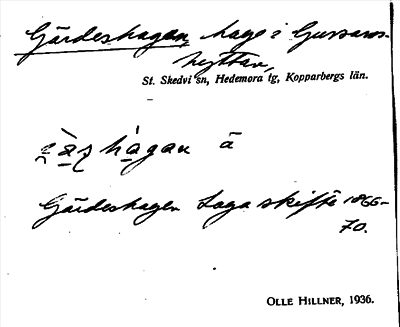 Gärdeshagen, hage i Gussars-
hyttan,
St. Skedvi sn, Hedemora tg, Kopparbergs län.
hàgan ā
Gärdeshagen Laga skifte 1866-
70.
OLLE HILLNER, 1936.